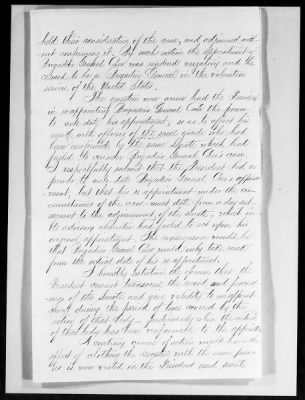 held their consideration of the case, and adjourned with-
out confirming it. By such action the appointment of
Brigadier General Cox was rendered negatory and he
ceased to be a Brigadier General in the volunteer
service of the United States.
The question now arises had the President
in re-appointing Brigadier General Cox the power
to ante date his appointment, so as to affect his
rank with officers of the same grade who had
been confirmed by the same senate, which had
failed to consider Brigadier General Cox's case.
I respectfully submit that the President had no
power to ante date Brigadier General Cox's appoint-
ment, but that his re-appointment under the cir-
cumstances of the case must date from a day sub-
sequent to the adjournment of the senate, which in
its advising character had failed to act upon his
original appointment. The consequence would be
that Brigadier General Cox could only take rank
from the actual date of his re-appointment.
I humbly entertain the opinion that the
President cannot transcend the record and proceed-
ings of the Senate and give validity to an appoint-
ment during the period of time covered by the
action of that body, particularly when the action
of that body has been unfavorable to the appointee.
A contrary course of action would have the
effect of clothing the executive with the same powers
as is now vested in the President and senate